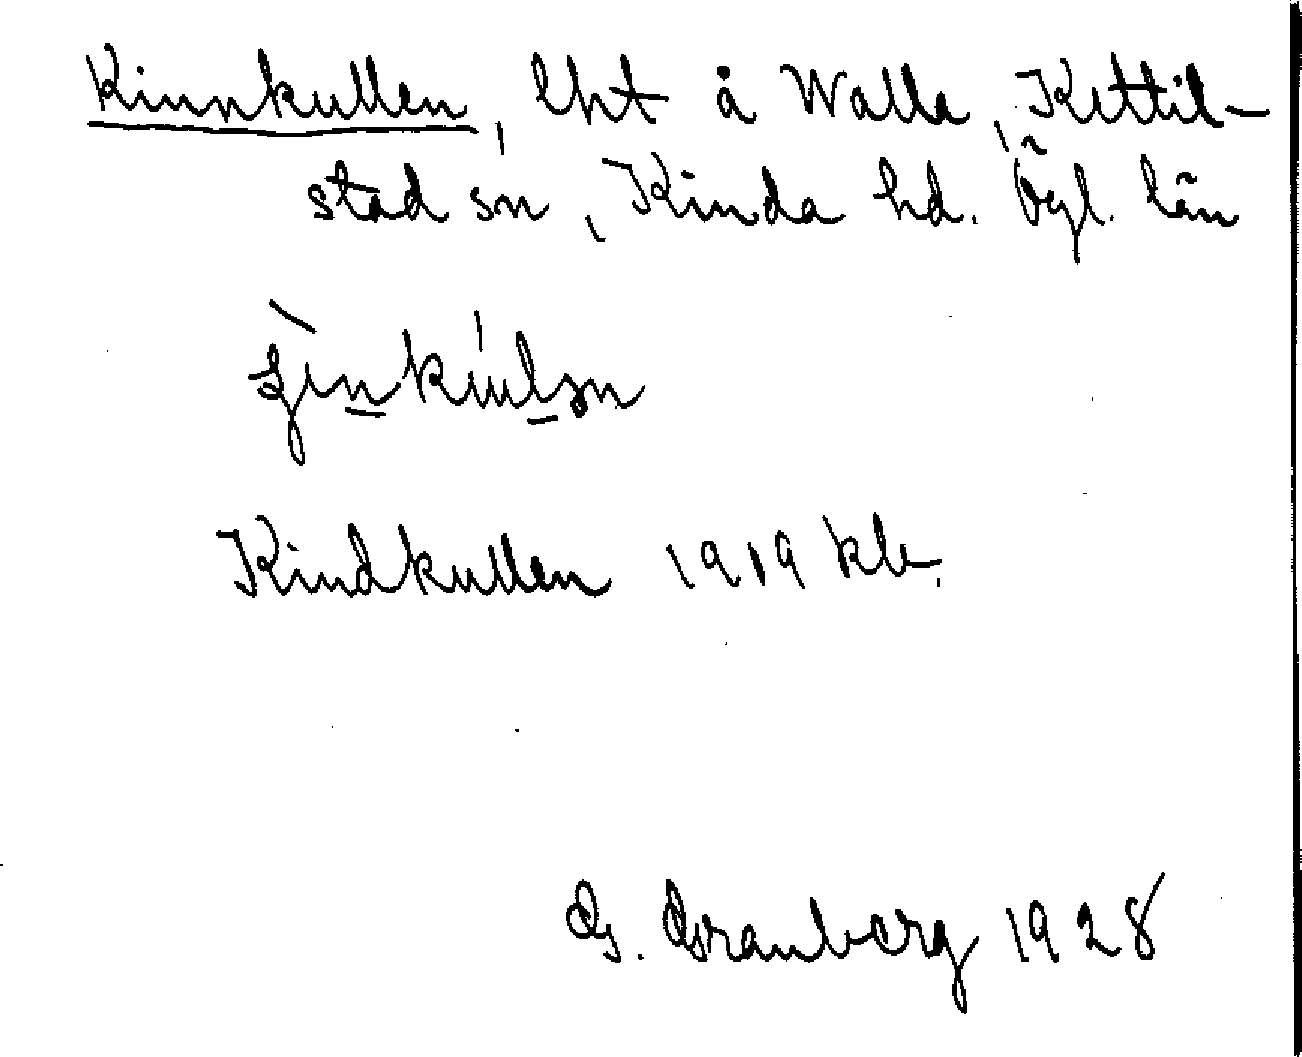 Kinnkullen, lht å Walla, Kettil-
stad sn, Kinda hd. Ögl. län
Kindkullen 1919 kb.
G. Granberg 1928